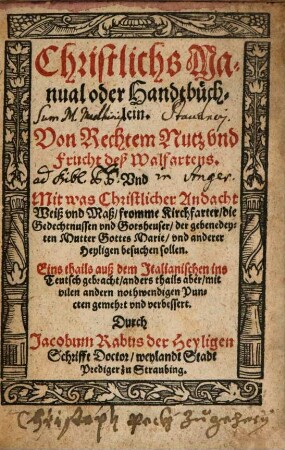 Christlichs Ma-
nual oder Handtbůch-
Sum M. lein.
Von Rechtem Nutz vnd
Frucht deß Walfartens.
ad Bibl. Vnd in Anger.
Mit was Christlicher Andacht
Weiß vnd Maß/ fromme Kirchfarter/ die
Gedechtnussen vnd Gotsheuser/ der gebenedey-
ten Mutter Gottes Marie/ vnd anderer
Heyligen besuchen sollen.
Eins thails auß dem Italianischen ins
Teutsch gebracht/ anders thails aber/ mit
vilen andern nothwendigen Pun-
cten gemehrt vnd verbessert.
Durch
Jacobum Rabus der Heyligen
Schrifft Doctor/ weylandt Stadt
Prediger zu Straubing.
Christoph zugeherig